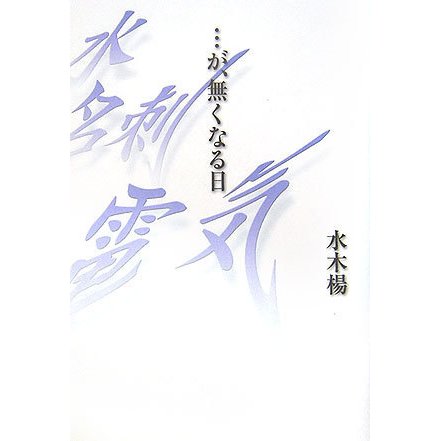 …が、無くなる日
水木楊
水
名刺
電気